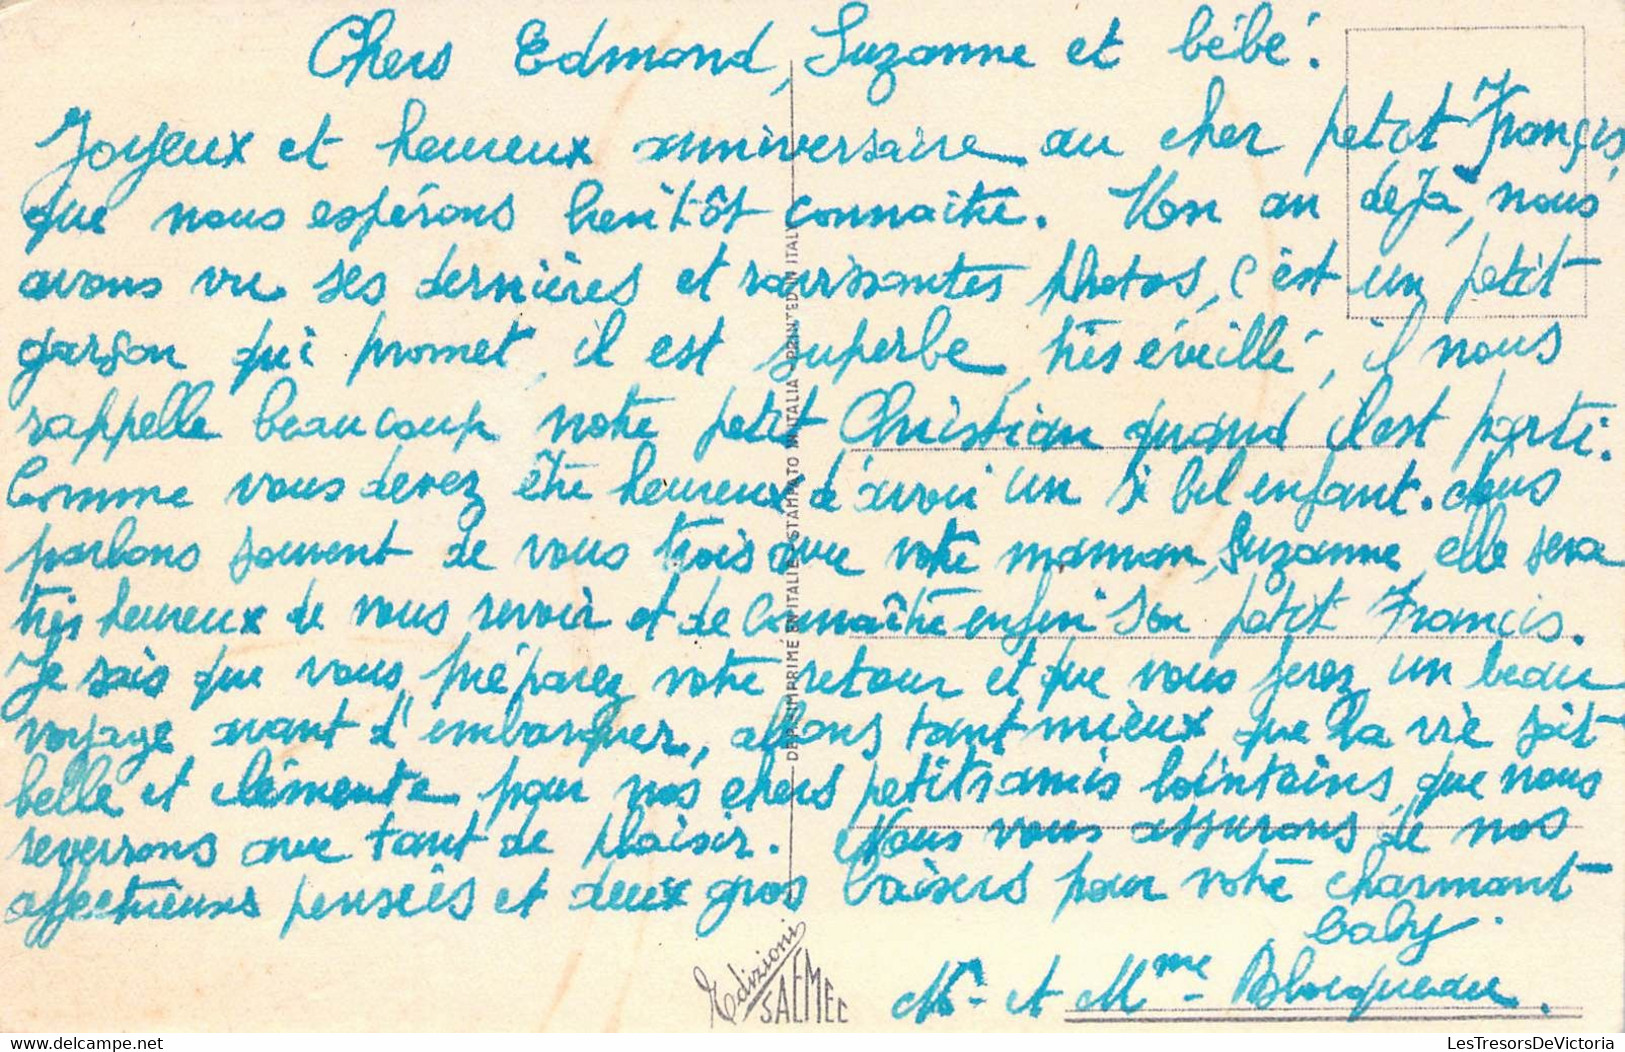 Chers Edmond, Suzanne et bébé.
Joyeux et heureux anniversaire au cher petit Françis,
que nous espérons bientôt connaitre. Un an déjà, nous
avons vu ses dernières et ravissantes photos, c'est un petit
garson qui promet, il est superbe, très éveillé, il nous
rappelle beaucoup notre petit Christian quand il est parti.
Comme vous devez être heureux d'avoir un si bel enfant. Nous
parlons souvent de vous trois avec votre maman, Suzanne, elle sera
très heureux de vous revoir et de connaître enfin son petit Francis.
Je sais que vous préparez votre retour et que vous ferez un beau
voyage avant d'embarquer, allons tant mieux que la vie soit
belle et clémente pour nos chers petits amis lointains, que nous
reverrons avec tant de plaisir. Nous vous assurons de nos
affectueuses pensées et deux gros baisers pour votre charmant
baby.
Mr et Mme Blocqueau.
DEP. IMPRIMÉ EN ITALIE - STAMPATO IN ITALIA - PRINTED IN ITALY
Edizioni
SAEMEC
delcampe.net
LesTresorsDeVictoria